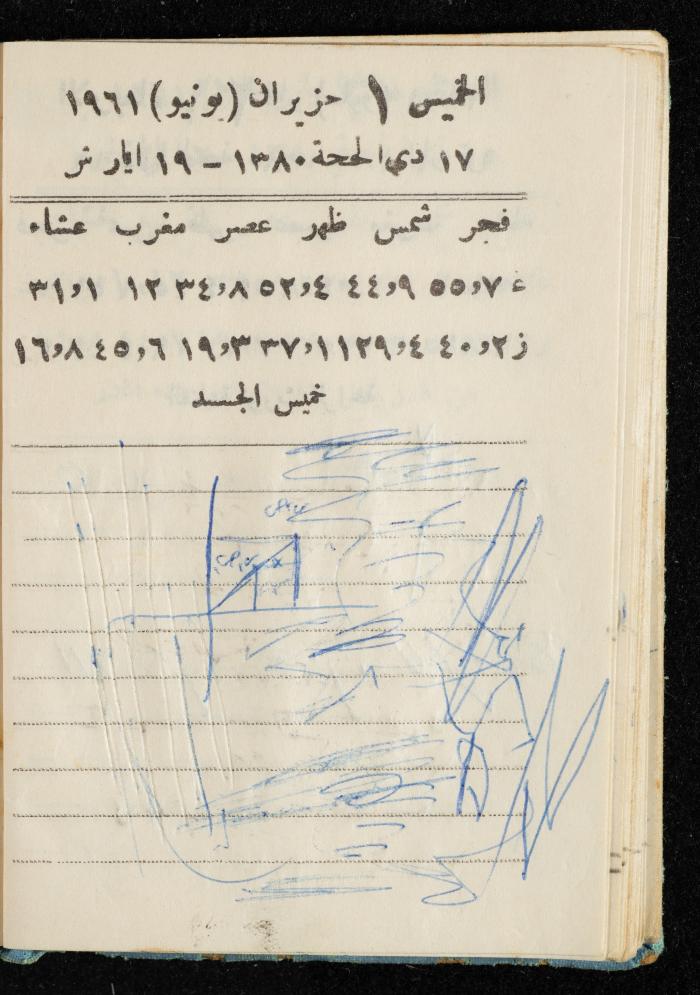 الخميس ١ حزيران (يونيو) ١٩٦١
١٧ ذي الحجة ١٣٨٠ – ١٩ ايار ش
فجر شمس ظهر عصر مغرب عشاء
٧,٥٥ ٩,٤٤ ٤,٥٢ ٨,٣٤ ١٢ ١,٣١
ز ٢,٤٠ ٤,٢٩ ١١,٣٧ ٣,١٩ ٦,٤٥ ٨,١٦
خميس الجسد